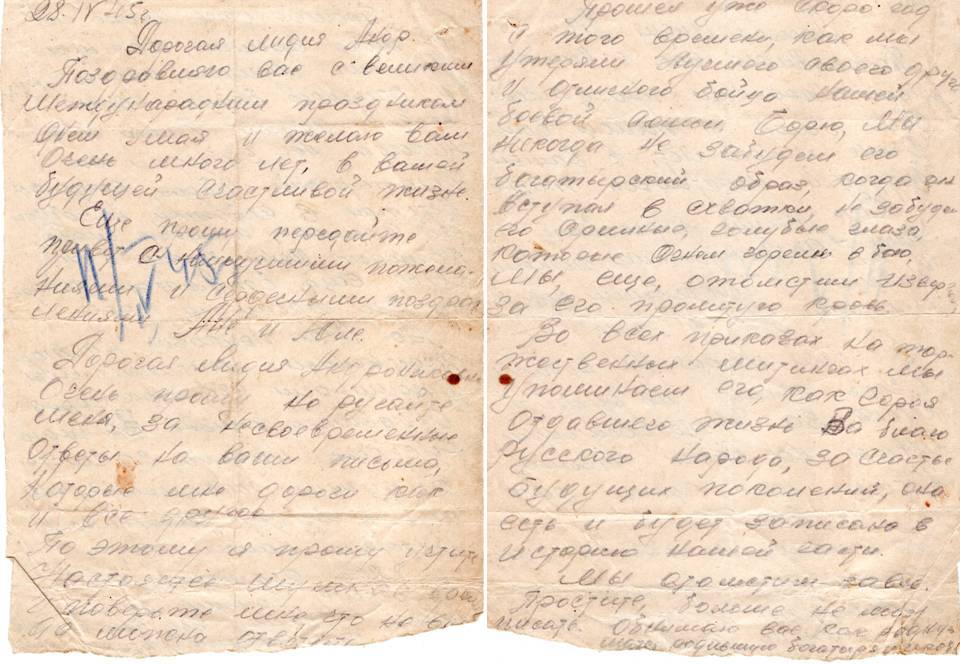 28.IV 45г.
Дорогая Лидия Андр.
Поздравляю вас с великим
Международным праздником
днем 1 мая и желаю вам
Очень много лет, в вашей
будущей счастливой жизне.
Еще прошу передайте
привет с наилучшими пожела-
ниями и сердечными поздрав
лениями,
11/V 45
Дорогая Лидия Андрониковна
Очень прошу не ругайте
меня, за несвоевременные
ответы на ваши письма,
которые мне дороги как
и все
По этому я прошу учтите
Настоящее
и поверьте мне что не
можно ответить
Прошел уже скоро год
с того времени, как мы
утеряли лучшего своего друга
и бойца нашей
боевой Борю, мы
никогда не забудем его
богатырский образ, когда он
вступал в схватки, не забуде
его голубые глаза,
которые огнем горели в бою,
Мы, еще, отомстим
за его пролитую кровь.
Во всех приказах на тор-
жественных митингах мы
упоминаем его, как героя
отдавшего жизнь за благо
Русского народа, за счастье
будущих поколений, она
есть и будет записана в
историю нашей части.
Мы отомстим за
Простите, больше не могу
писать. Обнимаю вас как
родившую богатыря